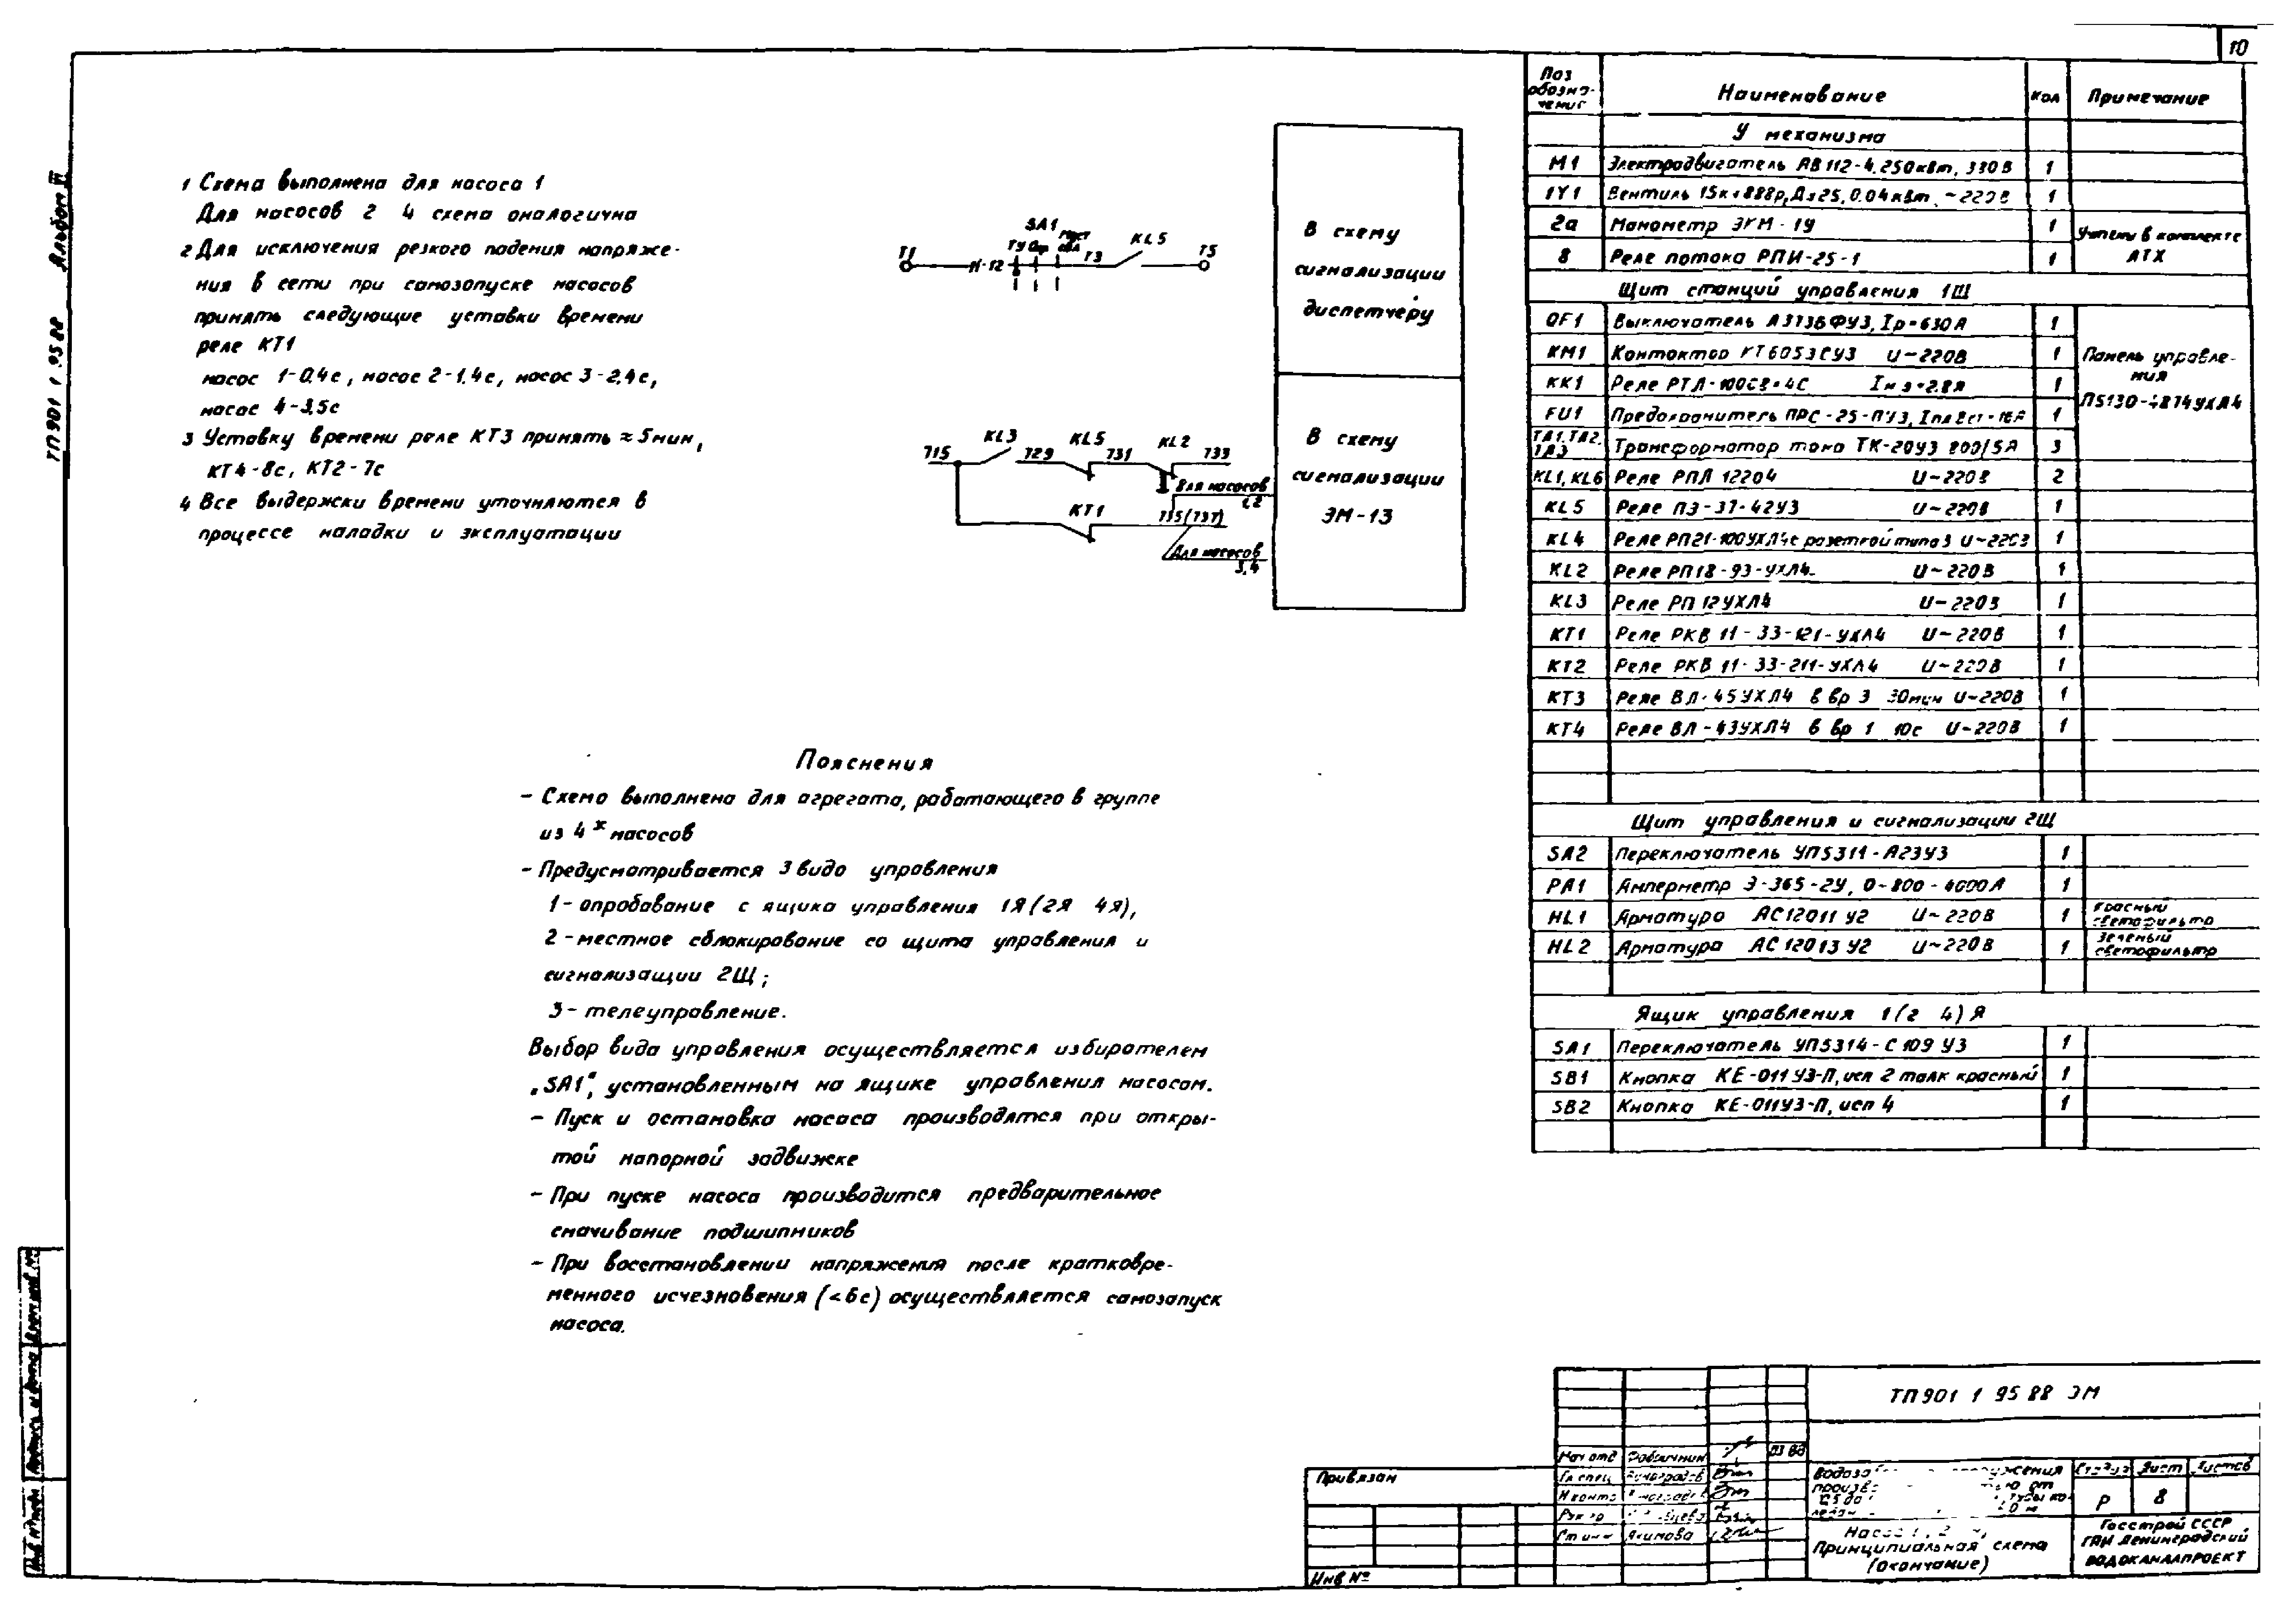 10
Альбом III
ТП 901 1 95 88
1 Схема выполнена для насоса 1
Для насосов 2 4 схема аналогична
2 Для исключения резкого падения напряже-
ния в сети при самозапуске насосов
принять следующие уставки времени
реле КТ1
насос 1-0,4с, насос 2-1,4с, насос 3-2,4с,
насос 4-3,5с
3 Уставку времени реле КТ3 принять ≈ 5мин,
КТ4-8с, КТ2-7с
4 Все выдержки времени уточняются в
процессе наладки и эксплуатации
SA1
ТУ Опр
Т1
11-12
Т3
KL5
Т5
В схему
сигнализации
диспетчеру
KL3
KL5
KL2
715
729
731
733
Для насосов
1,2
КТ1
735(737)
Для насосов
3,4
В схему
сигнализации
ЭМ-13
Пояснения
- Схема выполнена для агрегата, работающего в группе
из 4х насосов
- Предусматривается 3 вида управления
1- опробование с ящика управления 1Я(2Я 4Я),
2 - местное сблокирование со щита управления и
сигнализащии 2Щ;
3- телеуправление.
Выбор вида управления осуществляется избирателем
„SA1", установленным на ящике управления насосом.
- Пуск и остановка насоса производятся при откры-
той напорной задвижке
- При пуске насоса производится предварительное
смачивание подшипников
- При восстановлении напряжения после кратковре-
менного исчезновения (<6с) осуществляется самозапуск
насоса.
Поз обозна-чение Наименование Кол Примечание
У механизма
М1 Электродвигатель АВ112-4, 250кВт, 380В 1
1Y1 Вентиль 15кч888р, Ду25, 0.04кВт, ~220В 1
2а Манометр ЭКМ-1У 1 Учтены в комплекте
8 Реле потока РПИ-25-1 1 АТХ
Щит станций управления 1Щ
QF1 Выключатель А373БФУ3, Iр=630А 1
КМ1 Контактор КТ6053СУ3 U~220В 1 Панель управле-
ния
КК1 Реле 1
П5130-4874УХЛ4
FU1 Предохранитель ПРС-25-ПУ3, 1
ТА1,ТА2, ТА3 Трансформатор тока ТК-20У3 800/5А 3
KL1, KL6 Реле РПЛ 12204 U~220В 2
KL5 Реле ПЭ-37-42У3 U~220В 1
KL4 Реле РП21-100УХЛ4с розеткой типа 3 U~220В 1
KL2 Реле РП18-93-УХЛ4 U~220В 1
KL3 Реле РП 12УХЛ4 U~220В 1
КТ1 Реле РКВ 11-33-121-УХЛ4 U~220В 1
КТ2 Реле РКВ 11-33-211-УХЛ4 U~220В 1
КТ3 Реле ВЛ-45УХЛ4 в вр 3 30мин U~220В 1
КТ4 Реле ВЛ-43УХЛ4 в вр 1 10с U~220В 1
Щит управления и сигнализации 2Щ
SA2 Переключатель УП5311-А23У3 1
РА1 Амперметр Э-365-2У, 0-800-4000А 1
HL1 Арматура АС12011 У2 U~220В 1 Красный светофильтр
HL2 Арматура АС12013 У2 U~220В 1 Зеленый светофильтр
Ящик управления 1(2 4)Я
SA1 Переключатель УП5314-С109 У3 1
SB1 Кнопка КЕ-011У3-П, исп 2 толк красный 1
SB2 Кнопка КЕ-011У3-П, исп 4 1
ТП901 1 95 88 ЭМ
Нач отд
Гл спец
Н контр
Рук гр
Ст инж Якимова
Привязан
Инв №
Стадия Лист Листов
Р 8
Принципиальная схема
(окончание)
Госстрой СССР
ГПИ Ленинградский
ВОДОКАНАЛПРОЕКТ
Инв № подл Подпись и дата Взам инв №